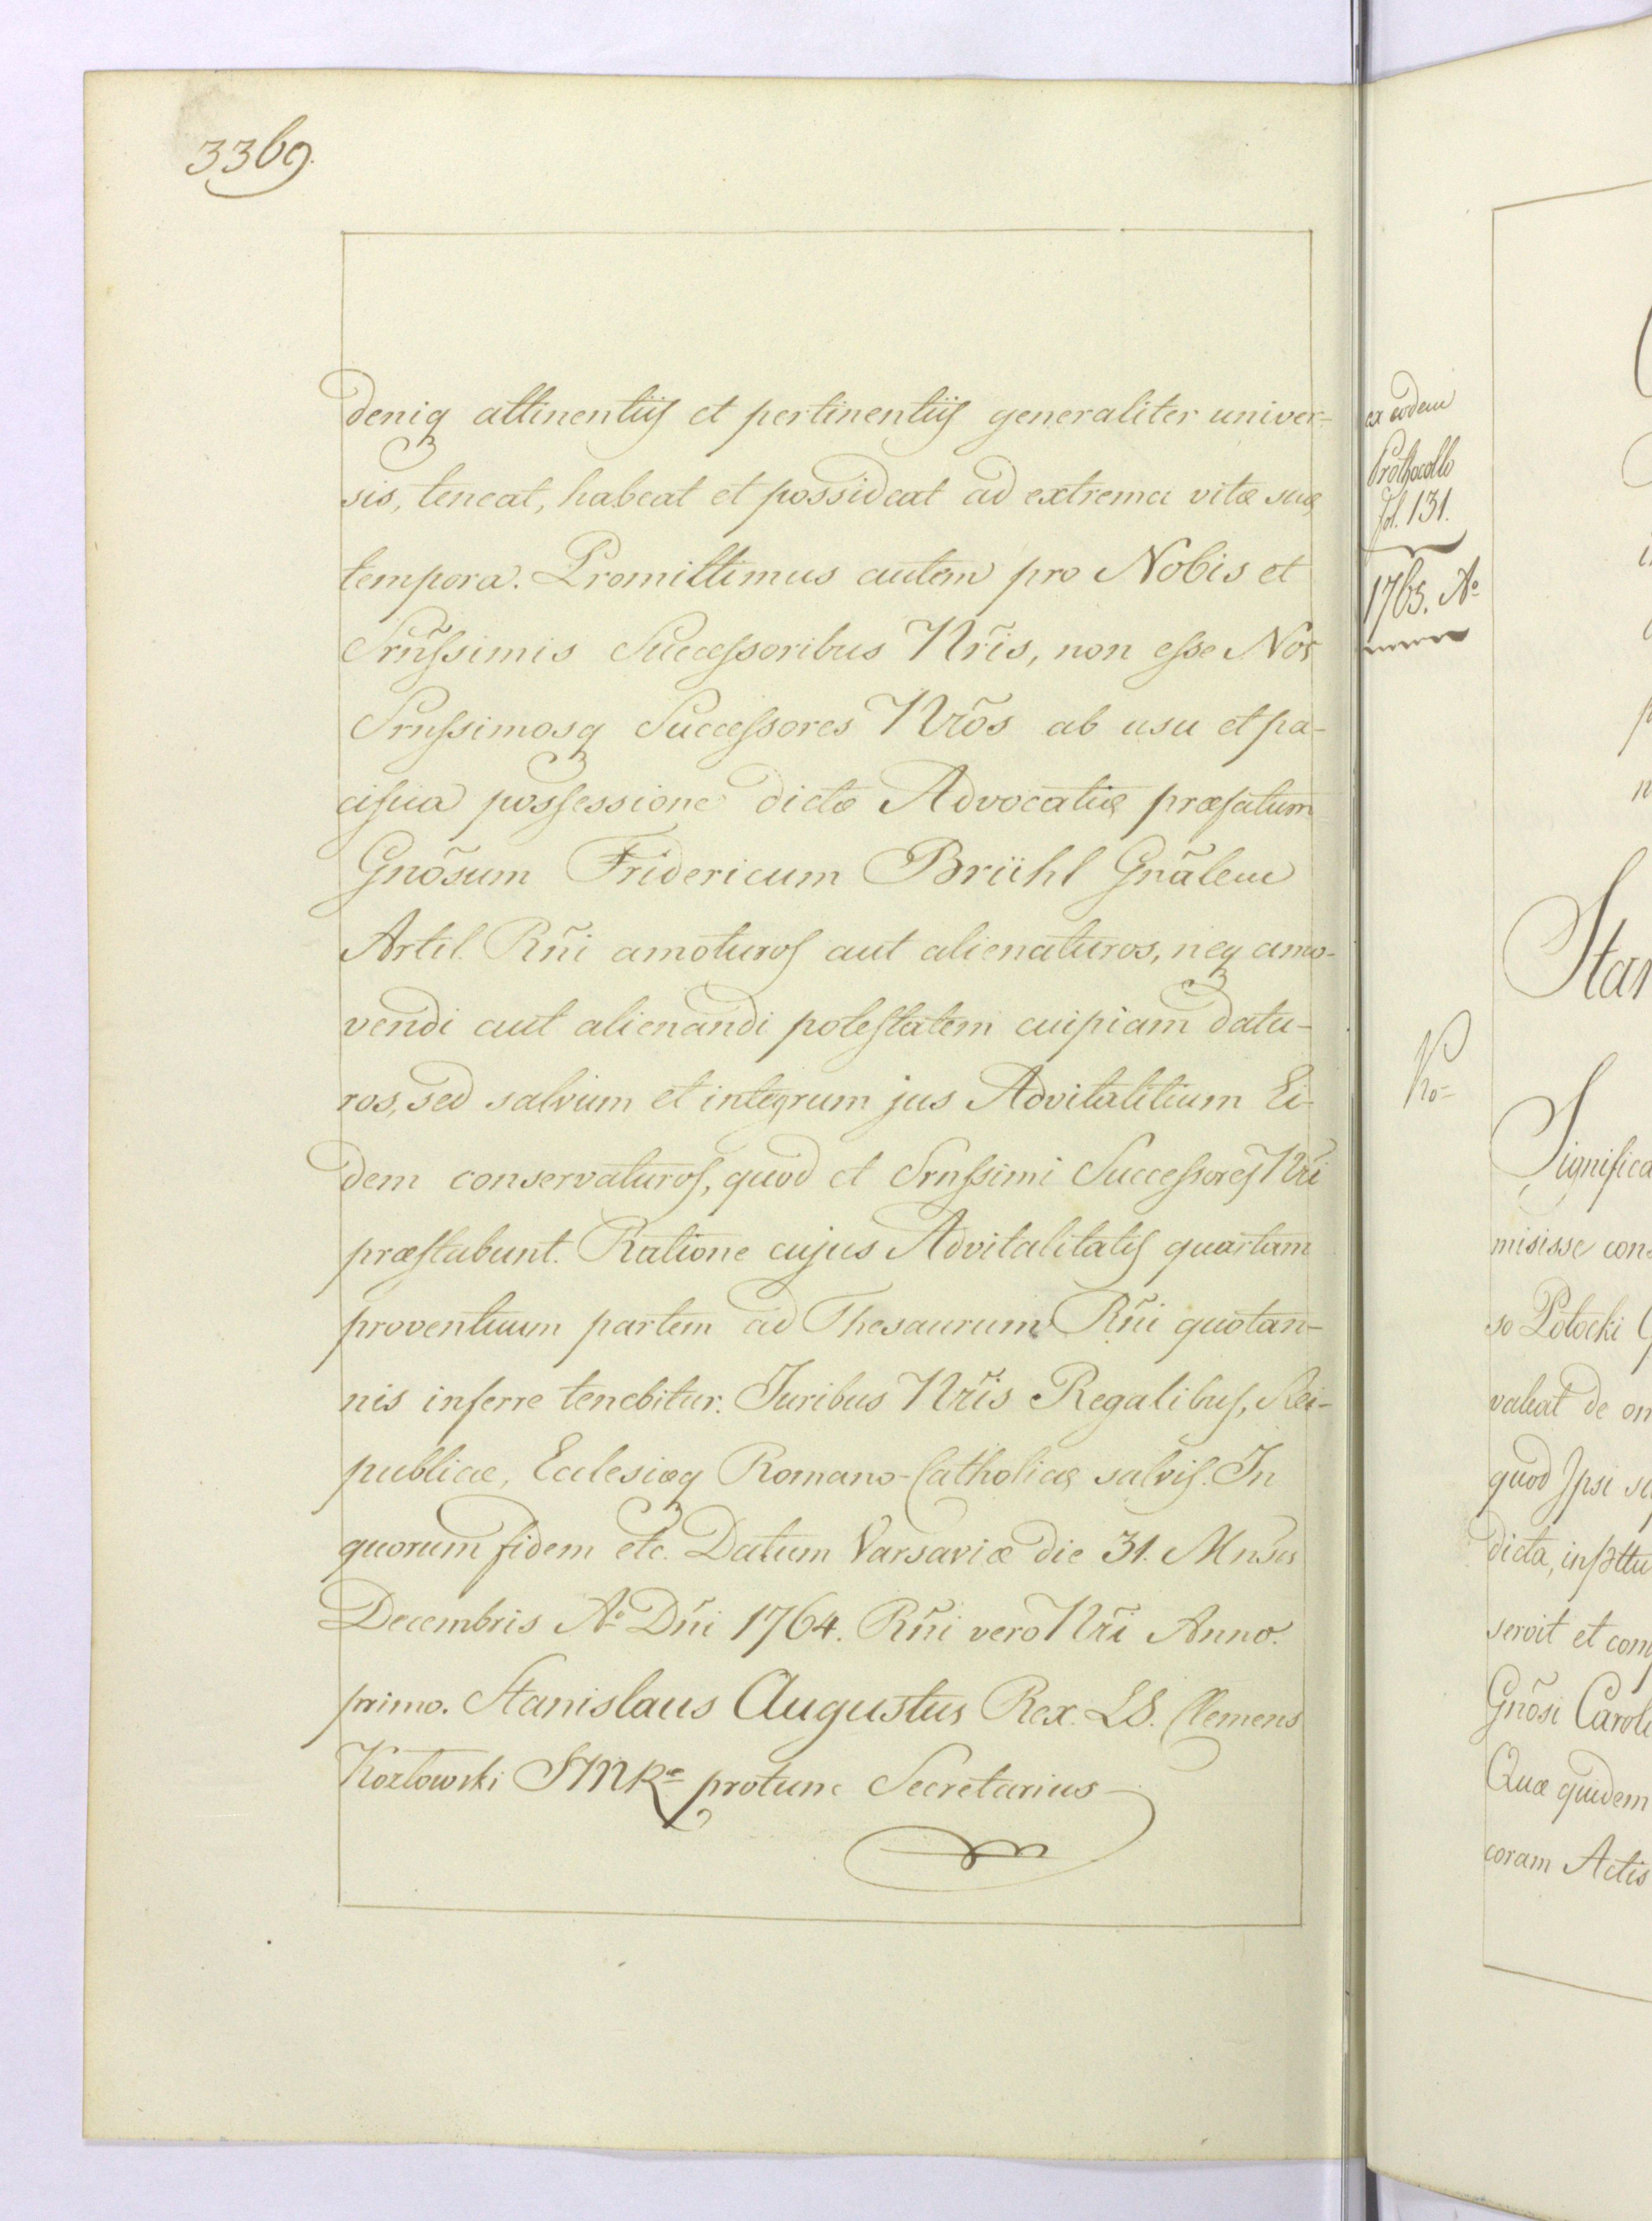 3369.
deniq attinentiis et pertinentiis generaliter univer=
sis, teneat, habeat et possideat ad extrema vitæ suæ
tempora. Promittimus autem pro Nobis et
Srñssimis Successoribus Nr̃is, non esse Nos
Srnssimosq Successores Nr̃os ab usu et pa-
cifica possessione dictæ Advocatiæ præfatum
Gnõsum Fridericum Brühl Gnãlem
Artil. Rñi amoturos aut alienaturos, neq amo-
vendi aut alienandi potestatem cuipiam datu-
ros, sed salvum et integrum jus Advitalitium Ei-
dem conservaturos, quod et Srnssimi Successores Nr̃i
præstabunt. Ratione cujus Advitalitatis quartam
proventuum partem ad Thesaurum Rñi quotan-
nis inferre tenebitur. Juribus Nr̃is Regalibus, Rei-
publicæ, Eclesiæq Romano-Catholicæ salvis. In
quorum fidem etc. Datum Varsaviæ die 31. Mnsis
Decembris Aº Dñi 1764. Rñi vero Nr̃i Anno
primo. Stanislaus Augustus Rex. LS. Clemens
Kozłowski SMRæ protunc Secretarius
ex eodem
Prothocollo
fol. 131.
1765. Aº
Star
Significa
misisse cons
so Potocki G
valeat de om
quod Ipsi su
dicta, insttu
servit et com
Gnõsi Caroli
Quæ quidem
coram Actis